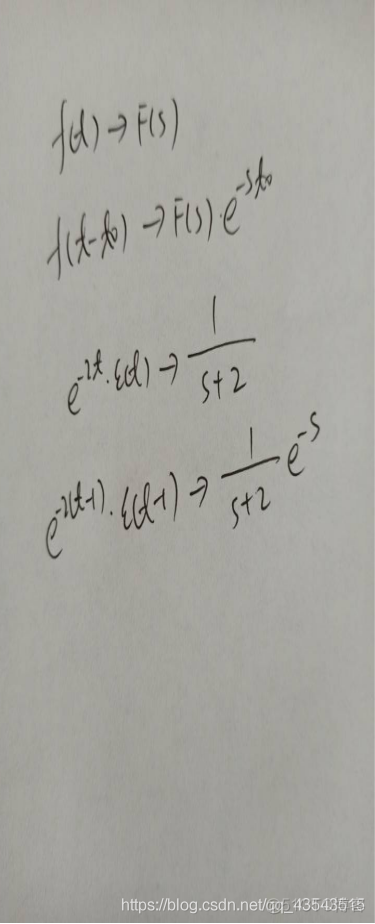 f(t)→F(s)
f(t-t₀)→F(s)·e^{-st₀}
e^{-2t}·ε(t)→\frac{1}{s+2}
e^{-2(t-1)}·ε(t-1)→\frac{1}{s+2}e^{-s}
https://blog.csdn.net/qq_43543515